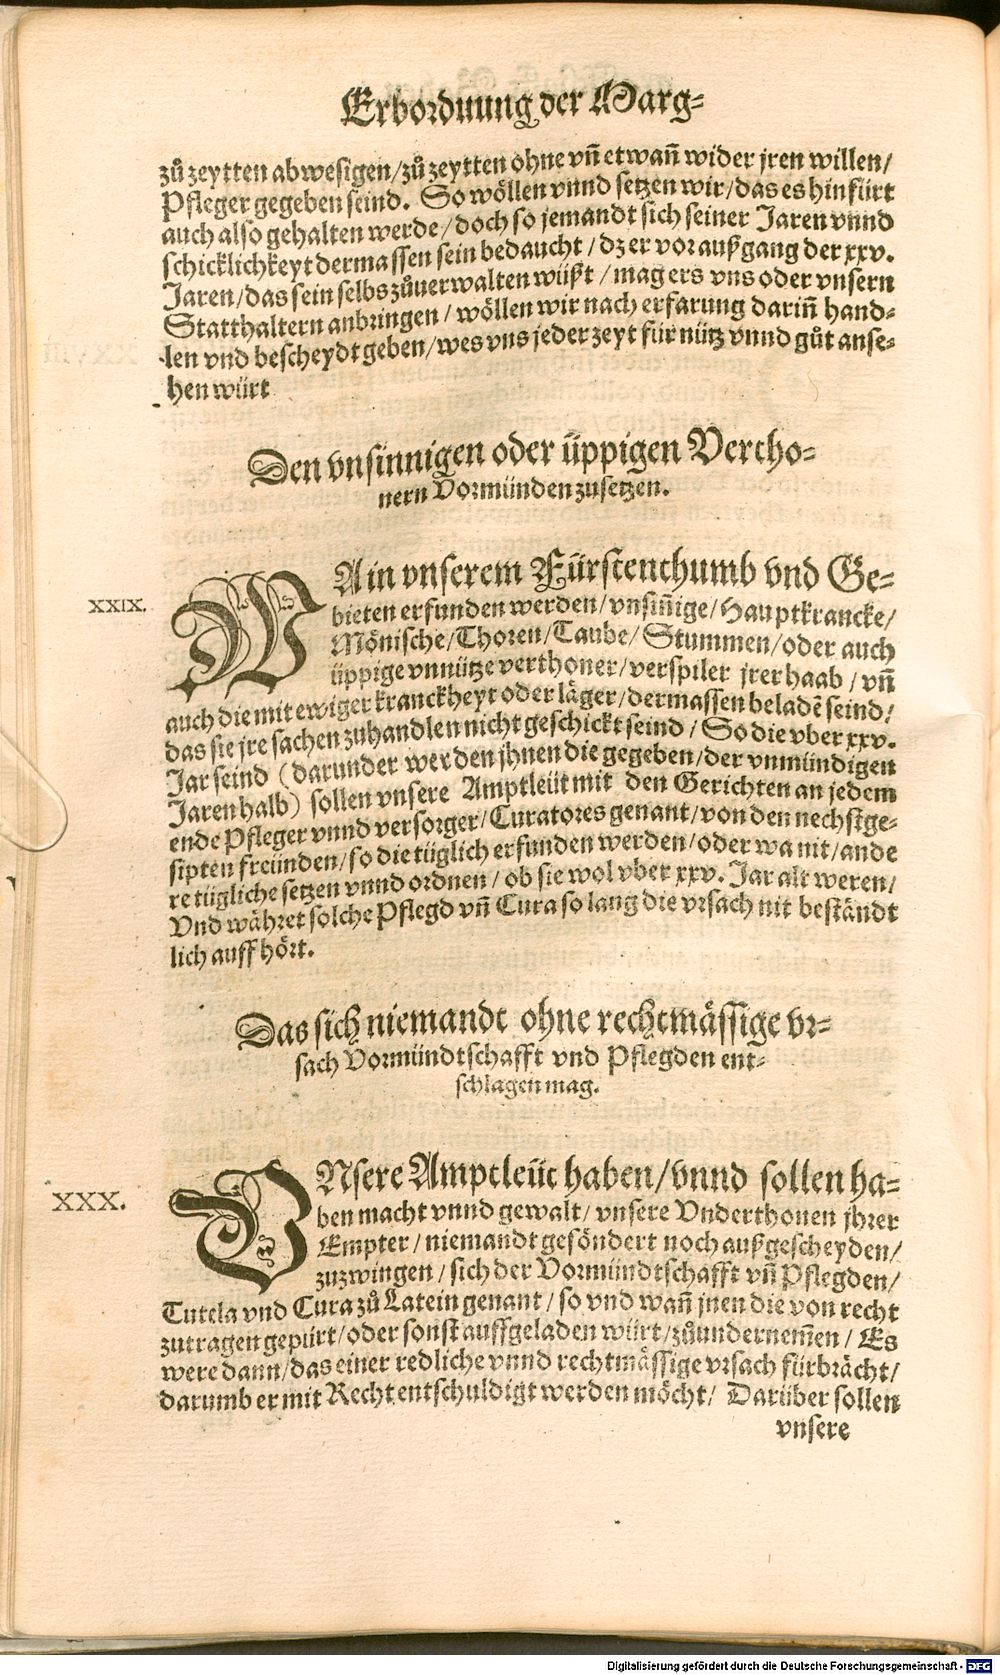 Erbordnung der Marg-
zů zeytten abwesigen/zů zeytten ohne vñ etwañ wider jren willen/
Pfleger gegeben seind. So wöllen vnnd setzen wir/das es hinfürt
auch also gehalten werde/doch so jemandt sich seiner Jaren vnnd
schicklichkeyt dermassen sein bedaucht/dz er vor außgang der xxv.
Jaren/das sein selbs zůuerwalten wüßt/mag ers vns oder vnsern
Statthaltern anbringen/wöllen wir nach erfarung dariñ hand-
len vnd bescheydt geben/wes vns jederzeyt für nütz vnnd gůt anse-
hen würt
Den vnsinnigen oder üppigen Vertho-
nern Vormünden zusetzen.
XXIX.
WA in vnserem Fürstenthumb vnd Ge-
bieten erfunden werden/vnsiñige/Hauptkrancke/
Mönische/Thoren/Taube/Stummen/oder auch
üppige vnnütze verthoner/verspiler jrer haab/vñ
auch die mit ewiger kranckheyt oder läger/dermassen beladẽ seind/
das sie jre sachen zuhandlen nicht geschickt seind/So die vber xxv.
Jar seind (darunder werden jhnen die gegeben/der vnmündigen
Jaren halb) sollen vnsere Amptleüt mit den Gerichten an jedem
ende Pfleger vnnd versorger/Curatores genant/von den nechstge-
sipten freünden/so die tüglich erfunden werden/oder wa nit/ande
re tügliche setzen vnnd ordnen/ob sie wol vber xxv. Jar alt weren/
Vnd währet solche Pflegd vñ Cura so lang die vrsach nit beständt
lich auff hört.
Das sich niemandt ohne rechtmässige vr-
sach Vormündtschafft vnd Pflegden ent-
schlagen mag.
XXX.
VNsere Amptleüt haben/vnnd sollen ha-
ben macht vnnd gewalt/vnsere Vnderthonen jhrer
Empter/niemandt gesöndert noch außgescheyden/
zuzwingen/sich der Vormündtschafft vñ Pflegden/
Tutela vnd Cura zů Latein genant/so vnd wañ jnen die von recht
zutragen gepürt/oder sonst auffgeladen würt/zůundernem̃en/Es
were dann/das einer redliche vnnd rechtmässige vrsach fürbrächt/
darumb er mit Recht entschuldigt werden möcht/ Darüber sollen
vnsere
Digitalisierung gefördert durch die Deutsche Forschungsgemeinschaft - DFG